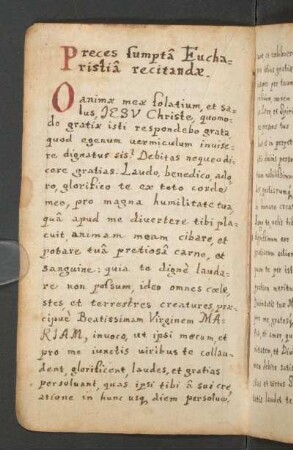 Preces sumptâ Eucha-
ristiâ recitandæ.
O animæ meæ solatium, et sa-
lus, JESU Christe, quomo-
do gratiæ isti respondebo grata,
quod egenum vermiculum invise-
re dignatus sis? Debitas nequeo di-
cere gratias. Laudo, benedico, ado-
ro, glorifico te ex toto corde
meo, pro magna humilitate tua,
quâ apud me divertere tibi pla-
cuit, animam meam cibare, et
potare tuâ pretiosâ carne, et
sanguine: quia te dignè lauda-
re non possum, ideo omnes cœle-
stes et terrestres creaturas, præ-
cipuè Beatissimam Virginem MA-
RIAM, invoco, ut ipsi mecum, et
pro me iunctis viribus te collau-
dent, glorificent, laudes, et gratias
persoluant, quas ipsi tibi â suâ cre-
atione in hunc usq, diem persoluūt,